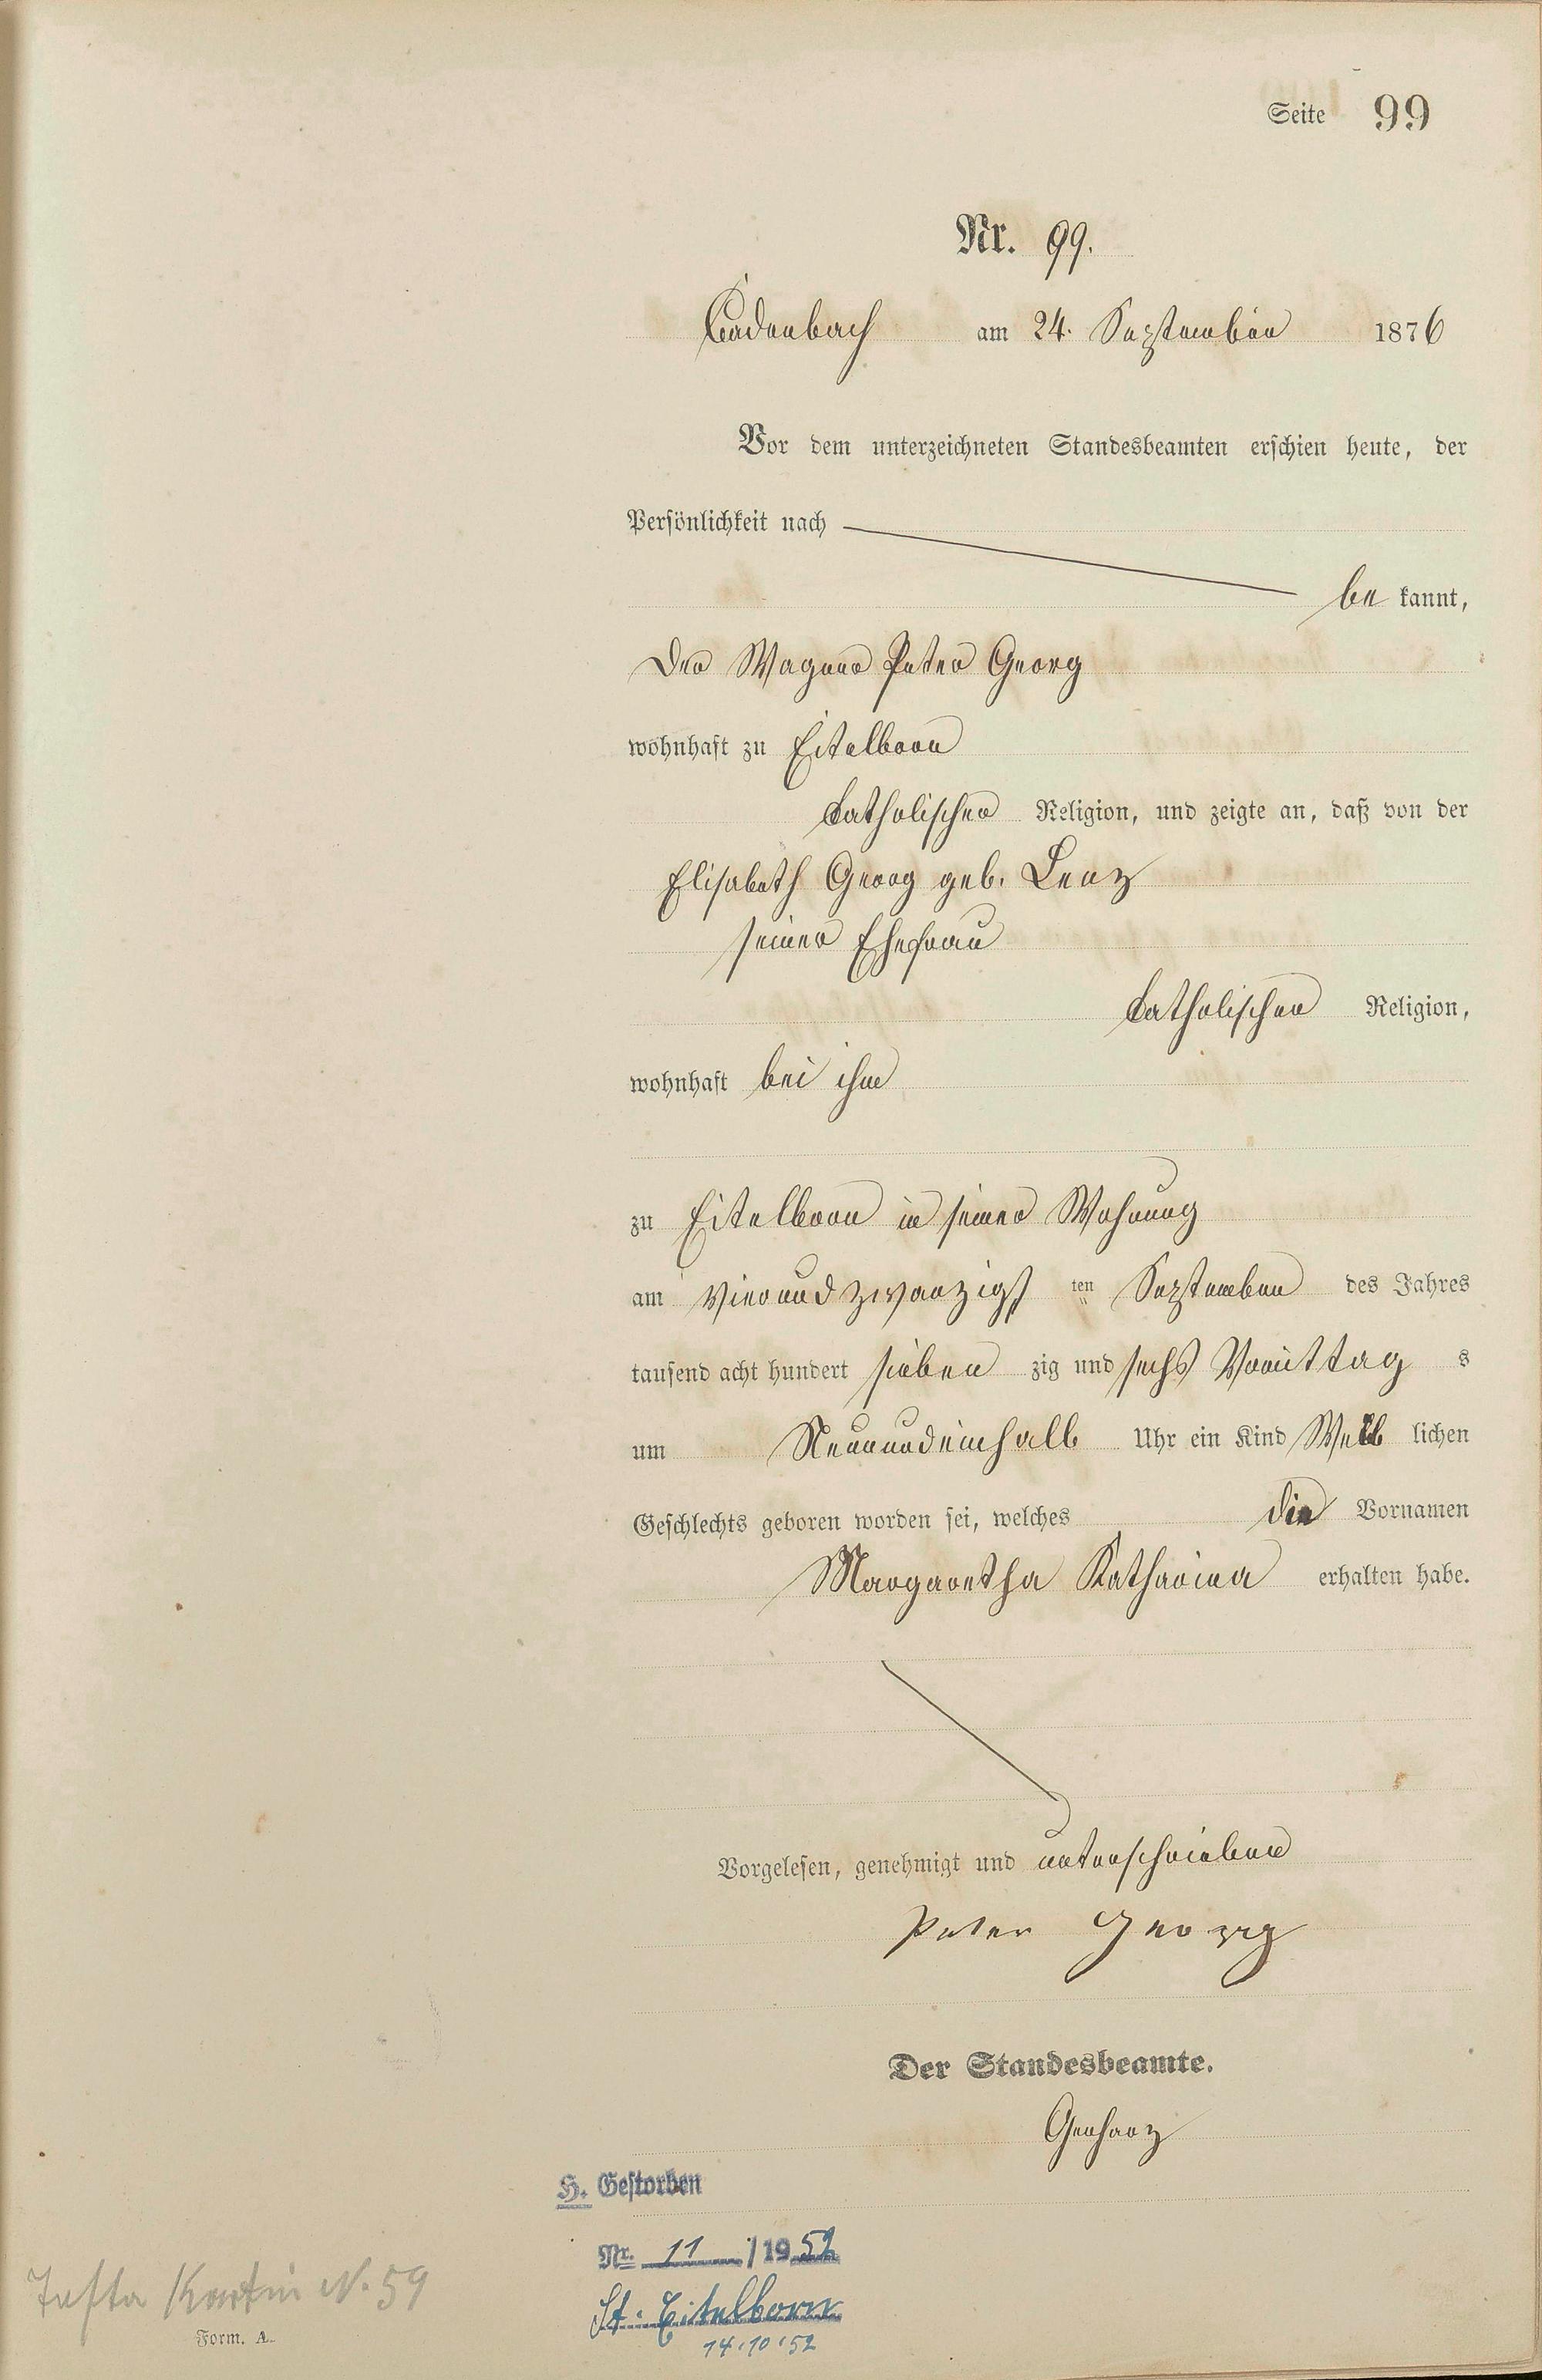 Seite 99
Nr. 99.
Cadenbach am 24. September 1876
Vor dem unterzeichneten Standesbeamten erschien heute, der
Persönlichkeit nach
be kannt,
der Wagner Peter Georg
wohnhaft zu Eitelborn
katholischer Religion, und zeigte an, daß von der
Elisabeth Georg geb. Lenz
seiner Ehefrau
katholischer Religion,
wohnhaft bei ihm
zu Eitelborn in seiner Wohnung
am vierundzwanzigs ten September des Jahres
tausend acht hundert sieben zig und sechs Vormittag s
um Neunundeinhalb Uhr ein Kind Weib lichen
Geschlechts geboren worden sei, welches die Vornamen
Margaretha Katharina erhalten habe.
Vorgelesen, genehmigt und unterschrieben
Peter Georg
Der Standesbeamte.
Gerharz
H. Gestorben
Nr. 11 / 19 52
St. Eitelborn
14.10.52
N. 59
Form. A.